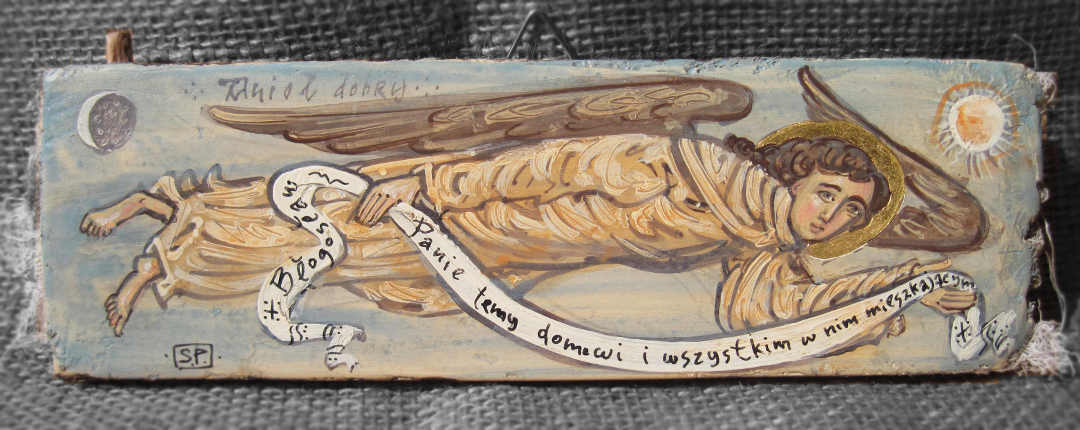 Anioł dobry
‡ Błogosław
Panie temu domowi i wszystkim w nim mieszkającym
S.P.